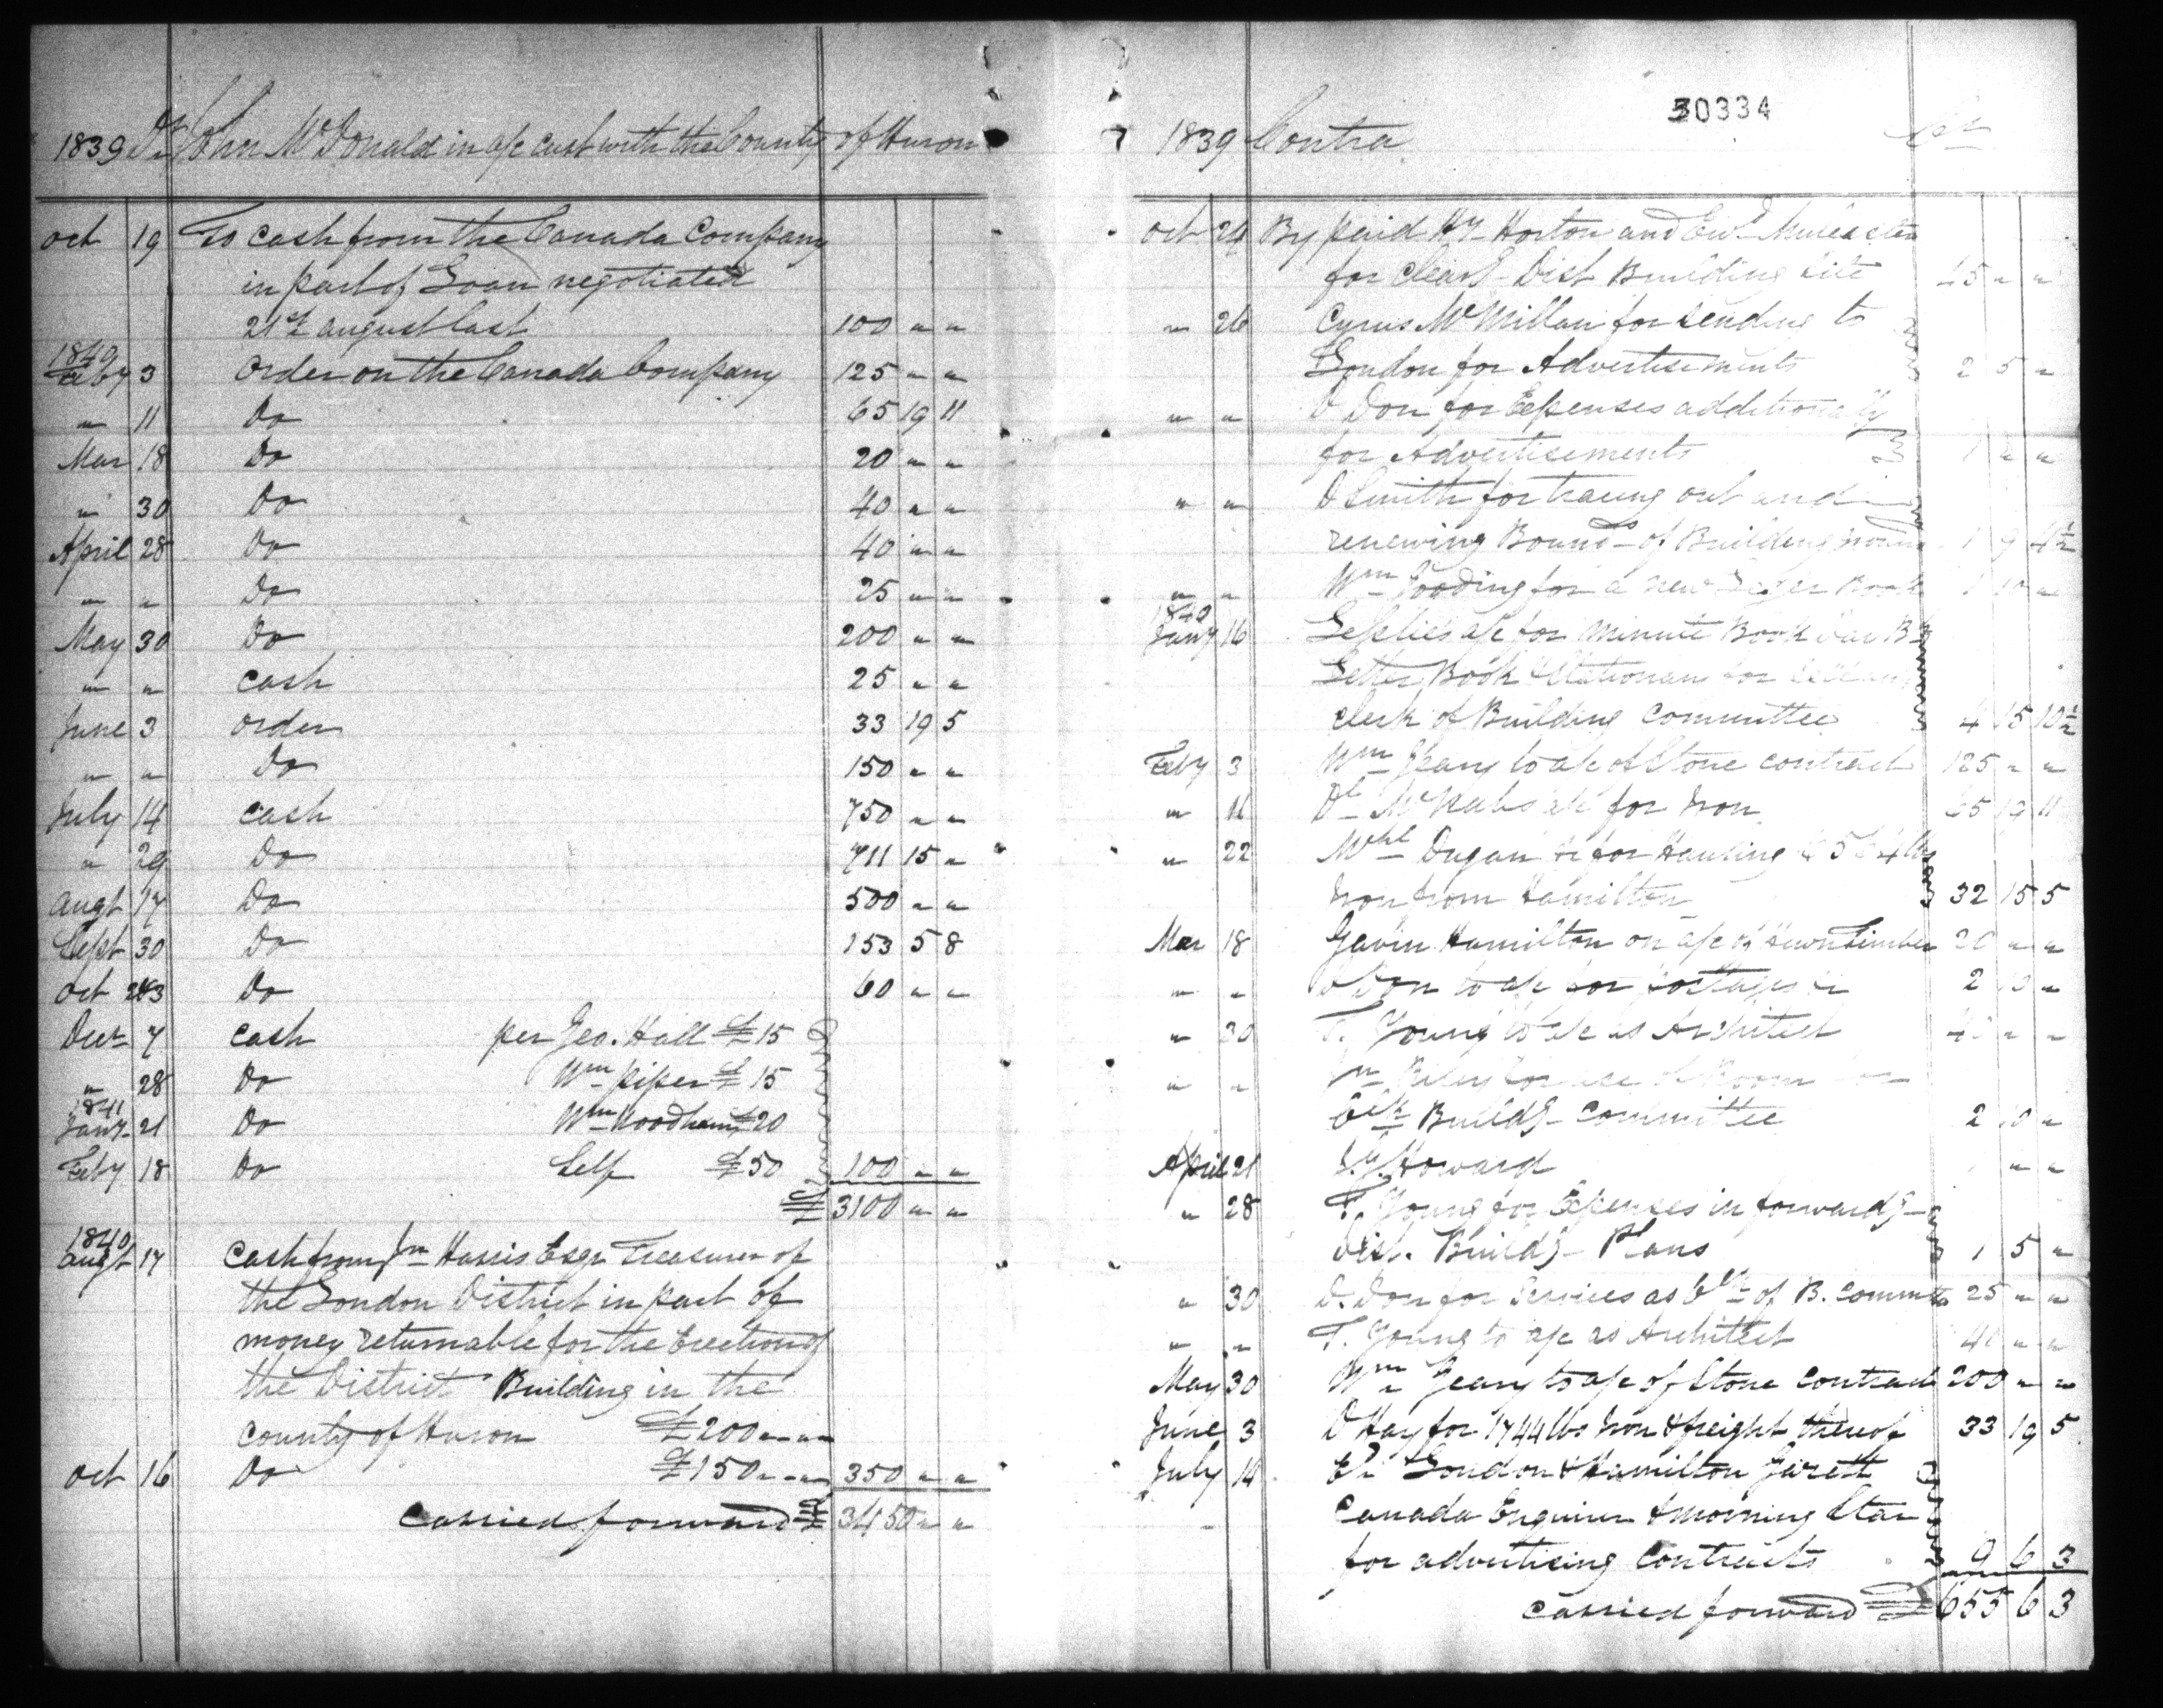 30334
1839 Dr John McDonald in a/c curt with the County of Huron
oct 19 To cash from the Canada Company
in part of Loan negotiated
21st august last 100 " "
1840
Feby 3 order on the Canada Company 125 " "
" 11 Do 65 19 11
Mar 18 Do 20 " "
" 30 Do 40 " "
April 28 Do 40 " "
" " Do 25 " "
May 30 Do 200 " "
" " cash 25 " "
June 3 order 33 19 5
" " Do 150 " "
July 14 cash 750 " "
" 29 Do 711 15 "
augt 17 Do 500 " "
Sept 30 Do 153 5 8
oct 23 Do 60 " "
Decr 7 cash per Geo. Hall £15
" 28 Do Wm Piper £15
1841
Jany 21 Do Wm £20
Feby 18 Do Self £50 100 " "
£ 3100 " "
1840
augt 17 Cash from Jn Harris Esqr Treasurer of
the London District in part of
money returnable for the Erection of
the District Building in the
County of Huron £200 " "
oct 16 Do £150 " " 350 " "
carried forward £ 3450 " "
1839 Contra Cr
oct 24 By paid Hy Horton and
for clearg Dist Building site 45 " "
" 26 Cyrus McMillan for sending to
London for Advertisements 2 5 "
" " D Don for Expenses additionally
for Advertisements 1 " "
" " D Smith for tracing out and
renewing Bounds of Building 1 7 4½
" " Wm Gooding for a new Book 1 10 "
1840
Jany 16 a/c for Minute Book
Letter Book & for
clerk of Building Committee 4 15 10½
Feby 3 Wm Geary to a/c of Stone contract 125 " "
" 11 a/c for Iron 65 19 11
" 22 Mchl Dugan for Hauling lbs
Iron from Hamilton 32 15 5
Mar 18 Gavin Hamilton on a/c of Hewn Timber 20 " "
" " D Don to a/c for postages 2 10 "
" 30 T. Young to a/c as Architect 40 " "
" " for use of Room
Buildg Committee 2 10 "
April 21 J.G. Howard " "
" 28 T. Young for Expenses in forwardg
Dist. Buildg Plans 1 5 "
" 30 D. Don for Services as Clk of B. Committee 25 " "
" " T. Young to a/c as Architect 40 " "
May 30 Wm Geary to a/c of Stone contract 200 " "
June 3 D Hay for 1744 lbs Iron & freight thereof 33 19 5
July 14 London & Hamilton
Canada Enquirer & Morning Star
for advertising Contracts 9 6 3
carried forward £ 655 6 3